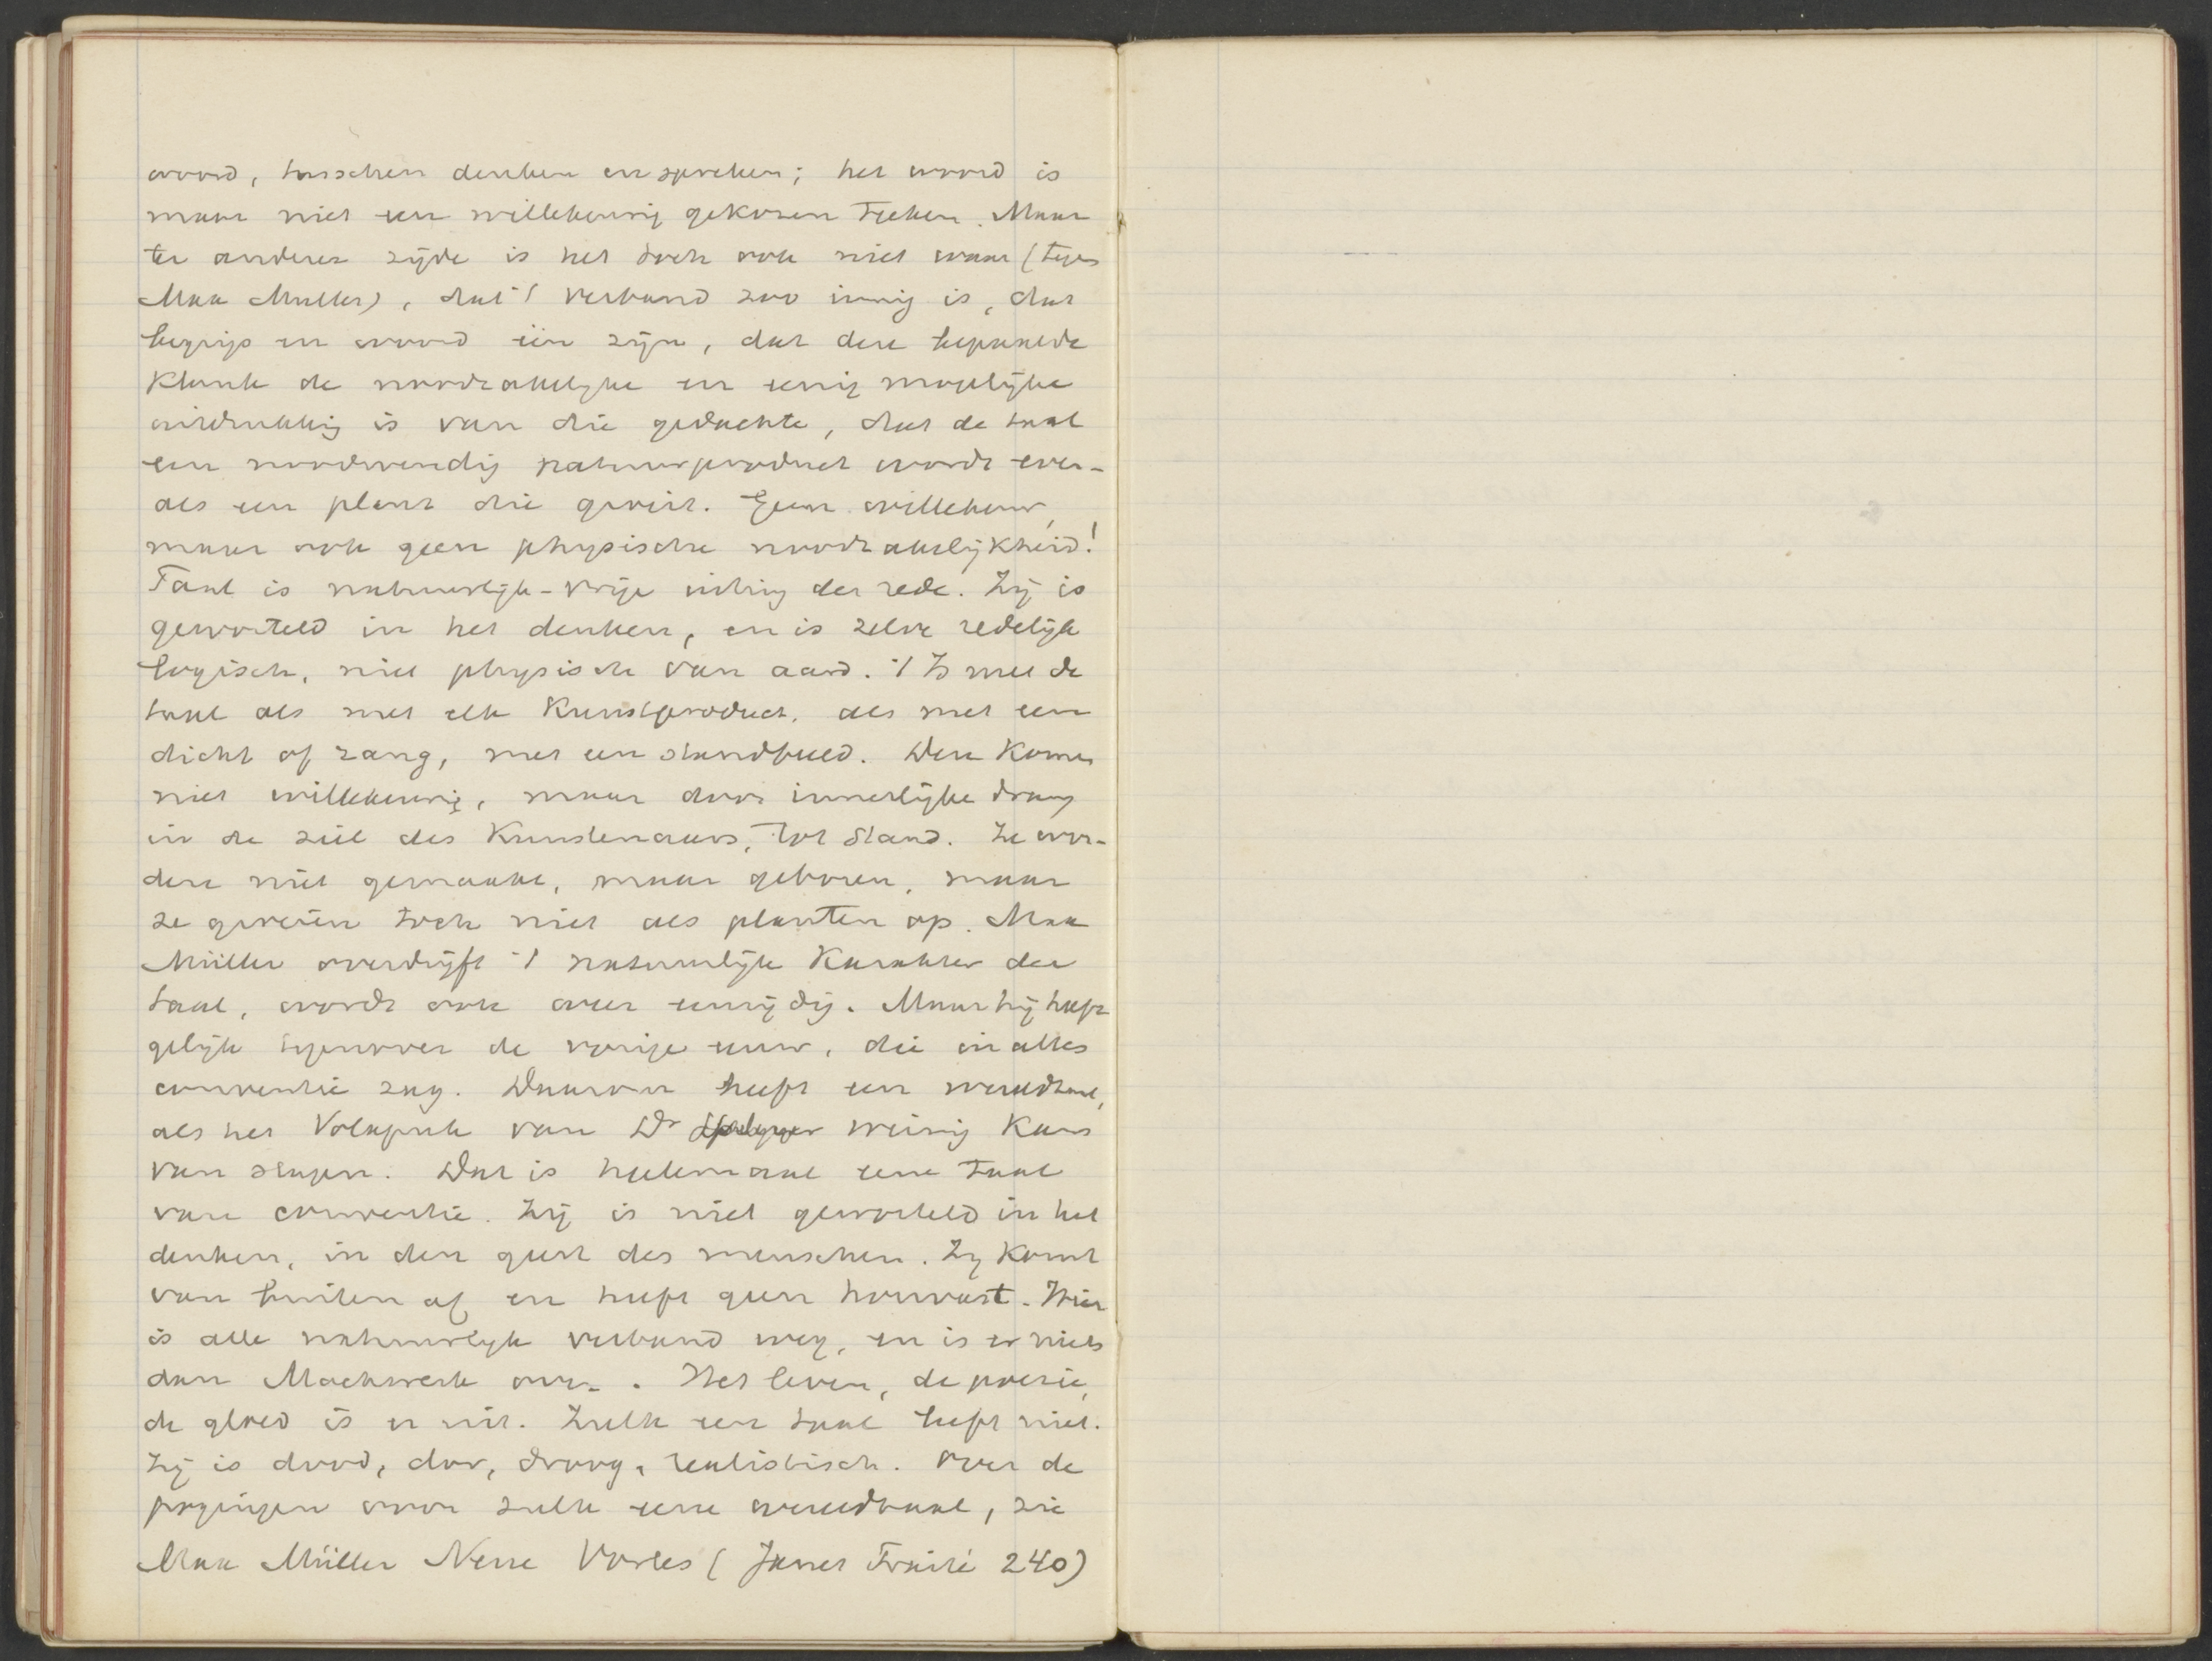 woord, tusschen denken en spreken; het woord is
maar niet een willekeurig gekozen teeken. Maar
ter anderer zijde is het toch ook niet waar (tegen
Max Muller), dat 't verband zoo innig is, dat
begrip en woord één zijn, dat deze bepaalde
Klank de noodzakelijke en eenig mogelijke
uitdrukking is van die gedachte, dat de taal
een noodwendig natuurproduct wordt even-
als een plant die groeit. Geen willekeur,
maar ook geen physische noodzakelijkheid!
Taal is natuurlijk-vrije uiting der rede. Zij is
geworteld in het denken, en is zelve redelijk
logisch, niet physisch van aard. 't Is met de
taal als met elk Kunstproduct, als met een
dicht of zang, met een standbeeld. Deze Komen
niet willekeurig, maar door innerlijke drang
in de ziel des Kunstenaars, tot stand. Ze wor-
den niet gemaakt, maar geboren, maar
ze groeien toch niet als planten op. Max
Müller overdrijft 't natuurlijk Karakter der
taal, wordt ook weer eenzijdig. Maar hij heeft
gelijk tegenover de vorige eeuw, die in alles
conventie zag. Daarom heeft een wereldtaal,
als het Volapuk van Dr weinig Kans
van slagen. Dat is heelemaal eene taal
van conventie. Zij is niet geworteld in het
denken, in den geest des menschen. Zij Komt
van buiten af en heeft geen houvast. Hier
is alle natuurlijk verband weg, en is er niets
dan Machwerk over. Het leven, de poezie,
de gloed is er uit. Zulk een taal leeft niet.
Zij is dood, dor, droog, realistisch. Over de
pogingen voor zulk eene wereldtaal, zie
Max Müller Neue Vorles ( Janet Traité 240)